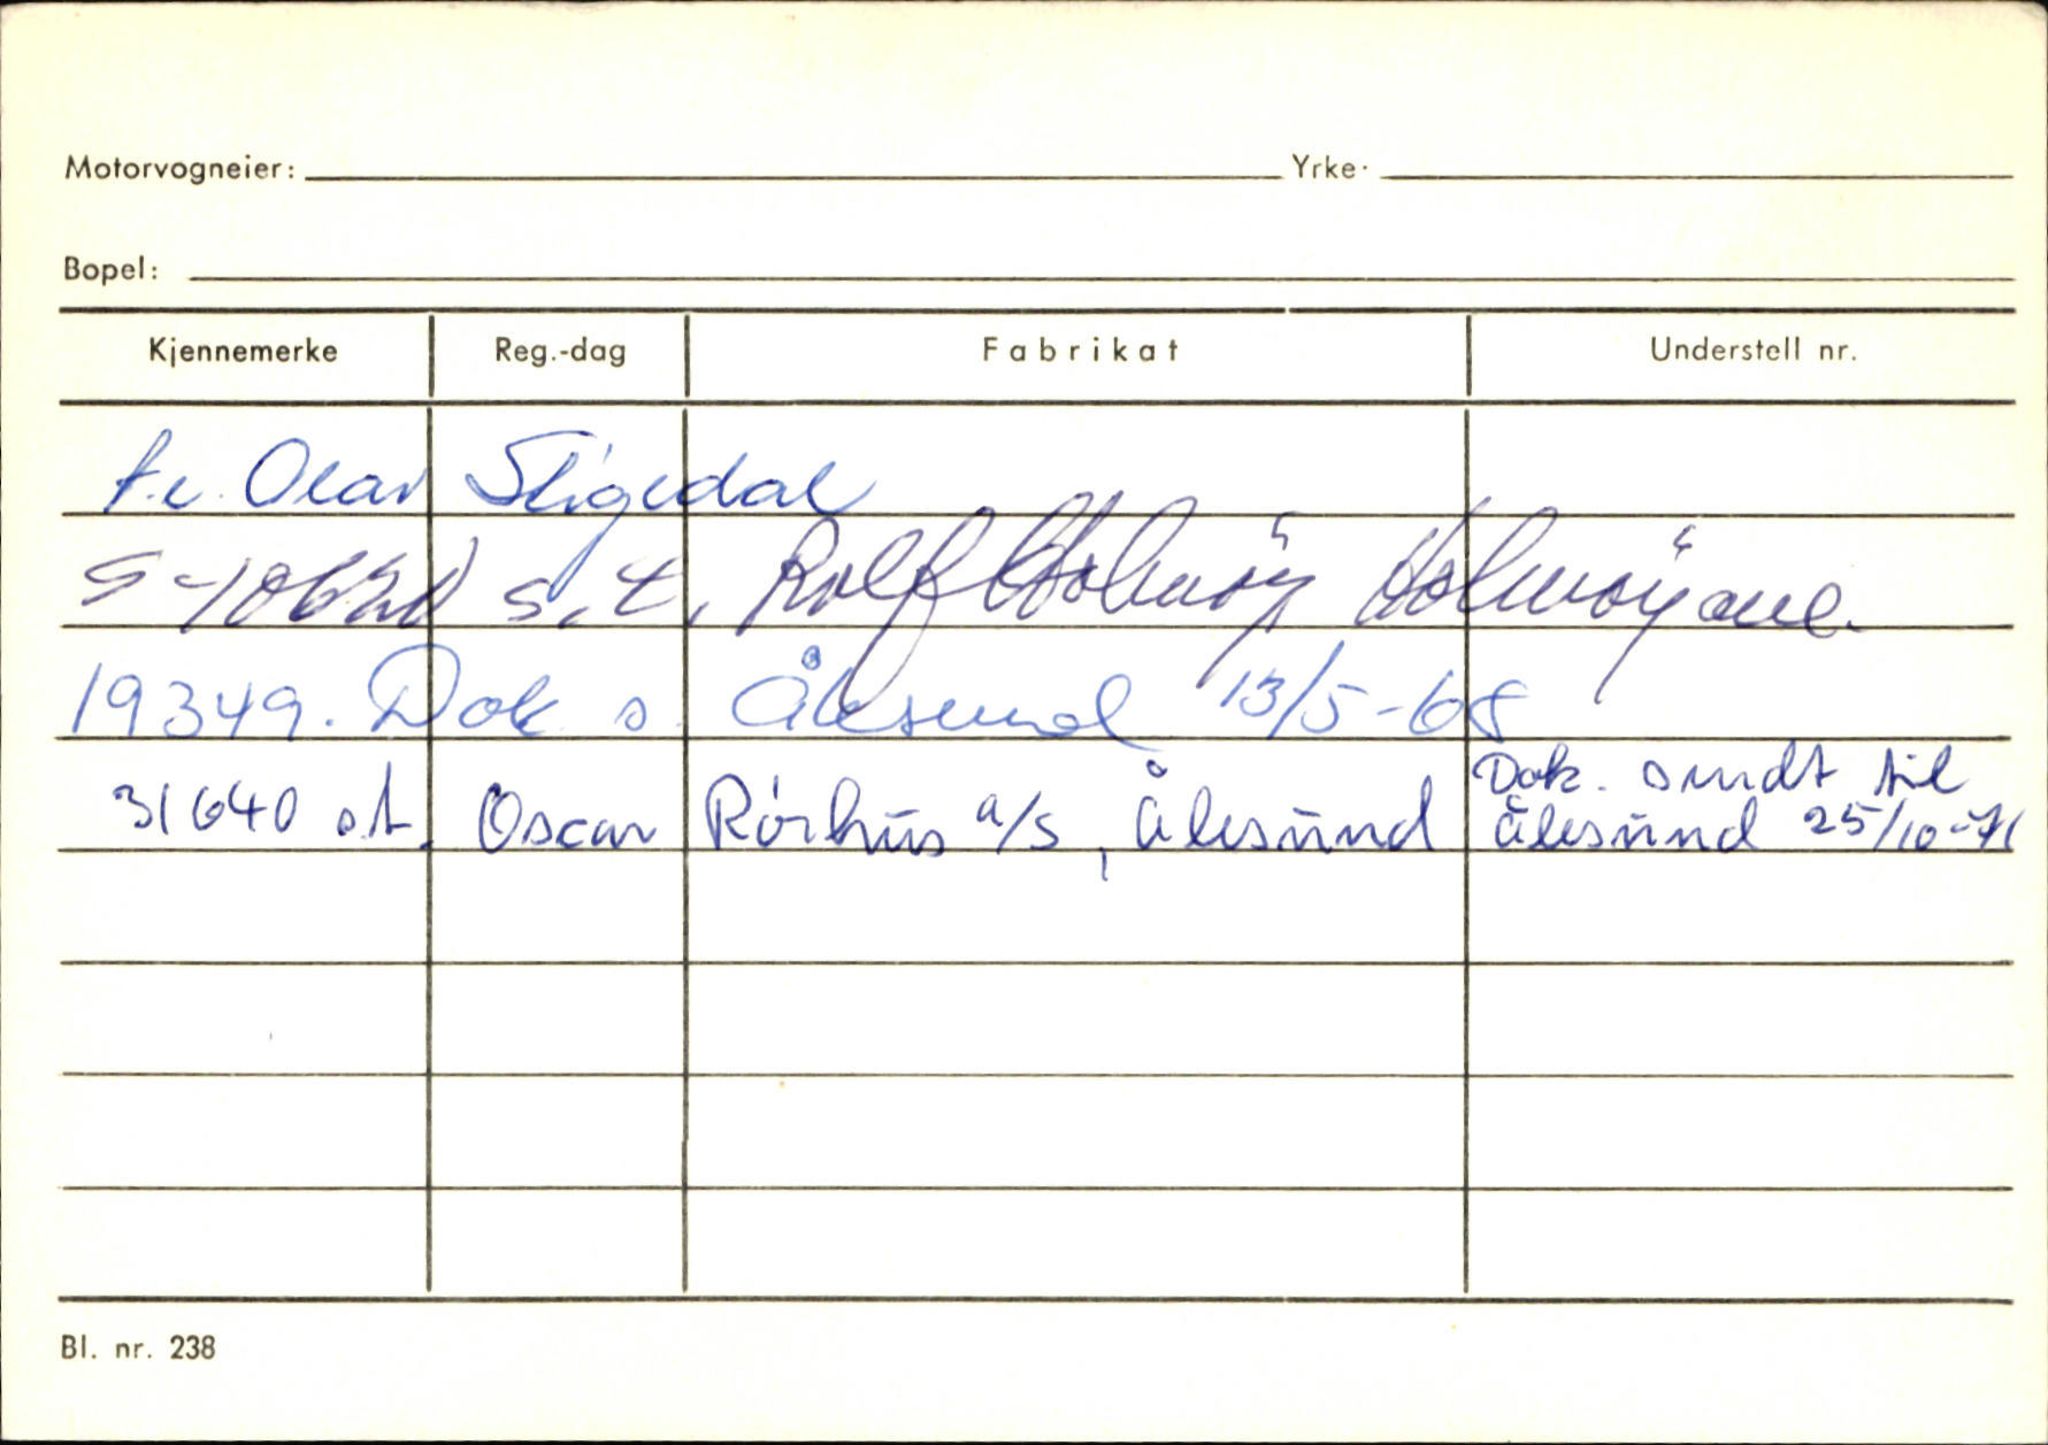 Motorvogneier: Yrke·
Bopel:
Kjennemerke Reg.-dag Fabrikat Understell nr.
Olav Stigedal
S-10620 s.t. Rolf Holmøy Holmøyane.
19349. Dok s. Ålesund 13/5-68
31640 s.t. Oscar Rørhus a/s, Ålesund Dok. sendt til
Ålesund 25/10-71
Bl. nr. 238